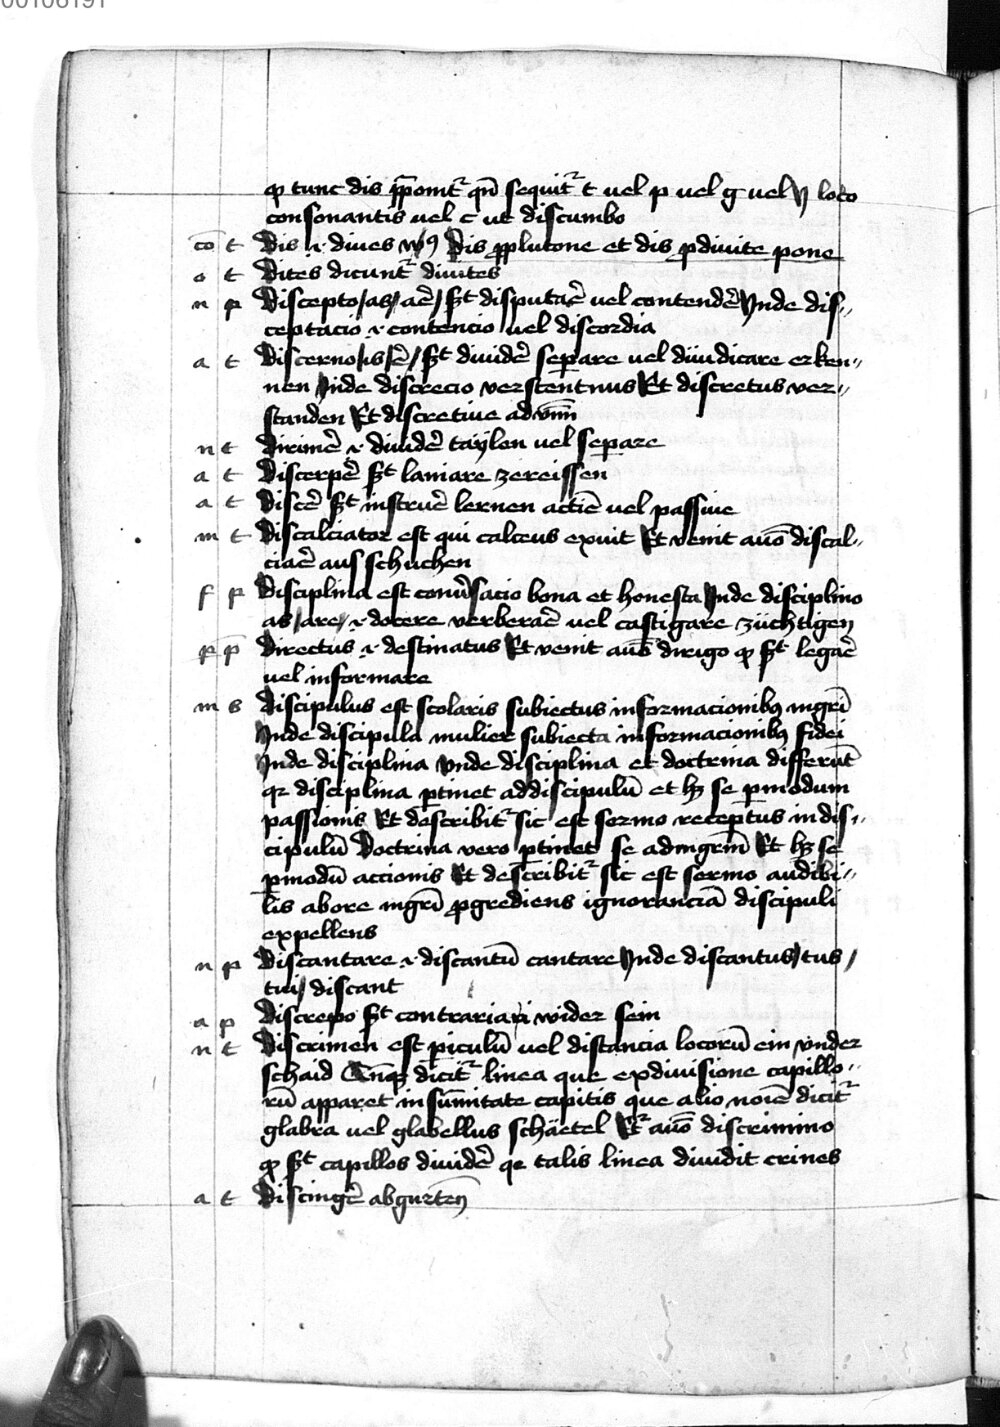 00106191
ꝙ tunc dis p̄ponit᷑ qn̄ sequit᷑ t uel p uel g uel loco
consonantis uel c ut discumbo
co t Dis .i. diues v̓ꝰ Dis ꝓ plutone et dis ꝓ diuite pone
o t Dites dicunt᷑ diuites
n p Discepto/as/are᷑/ s̄t disputare᷑ uel contendere᷑ Inde dis-
ceptacio .i. contencio uel discordia
a t Discerno/is/ere᷑/ s̄t diuidere᷑ separe uel diiudicare erken-
nen Inde discrecio verstentnus Et discretus ver-
standen Et discretiue aduu̅m
n t dirimere᷑ .i. diuidere᷑ taylen uel separe
a t Discerpere᷑ s̄t laniare zereissen
a t Discere᷑ s̄t instruere᷑ lernen actie̅ uel passiue
m t Discalciator est qui calceus exuit Et venit auo̅ discal-
ciare᷑ aus schuchen
f p Disciplina est conu̓sacio bona et honesta Inde disciplino
as/are/ .i. docere verberare᷑ uel castigare züchtigen
p p̄ directus .i. destinatus Et venit auo̅ dirigo ꝙ s̄t legare᷑
uel informare
m s discipulus est scolaris subiectus informacionibꝰ mgri̅
Inde discipula mulier subiecta informacionibꝰ fidei
Inde disciplina vnde disciplina et doctrina differu̅t
qꝛ disciplina ꝑtinet addiscipulu̅ et hꝫ se ꝑmodum
passionis Et describit᷑ sic est sermo receptus indis-
cipulu̅ Doctrina vero ꝑtinet se admgrm̅ Et hꝫ se
ꝑmodu̅ accionis Et describit᷑ sic est sermo audibi-
lis abore mgri̅ ꝓgrediens ignorancia̅ discipuli
expellens
n p Discantare .i. discantu̅ cantare Inde discantus/tus/
tui/ discant
a p Discrepo s̄t contrariari wider sein
n t Discrimen est ꝑiculu̅ uel distancia locoru̅ ein vnder
schaid dicit᷑ linea que exdiuisione capillo-
ru̅ apparet in su̅mitate capitis que alio noie̅ dicit᷑
glabra uel glabellus schäetel Et auo̅ discrimino
ꝙ s̄t capillos diuidere᷑ qꝛ talis linea diuidit crines
a t Discingere᷑ abgurten̅